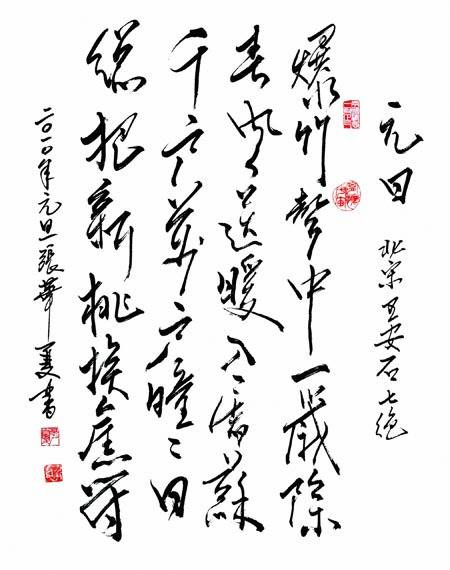 元日 北宋王安石七绝
爆竹聲中一歲除
春風送暖入屠蘇
千门萬户曈々日
總把新桃換舊符
二〇一〇年元旦張華夏書